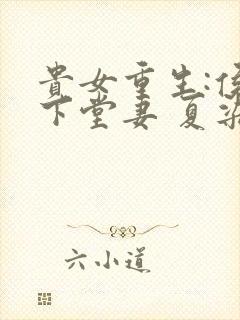 貴女重生:侯
下堂妻 夏染
六小道